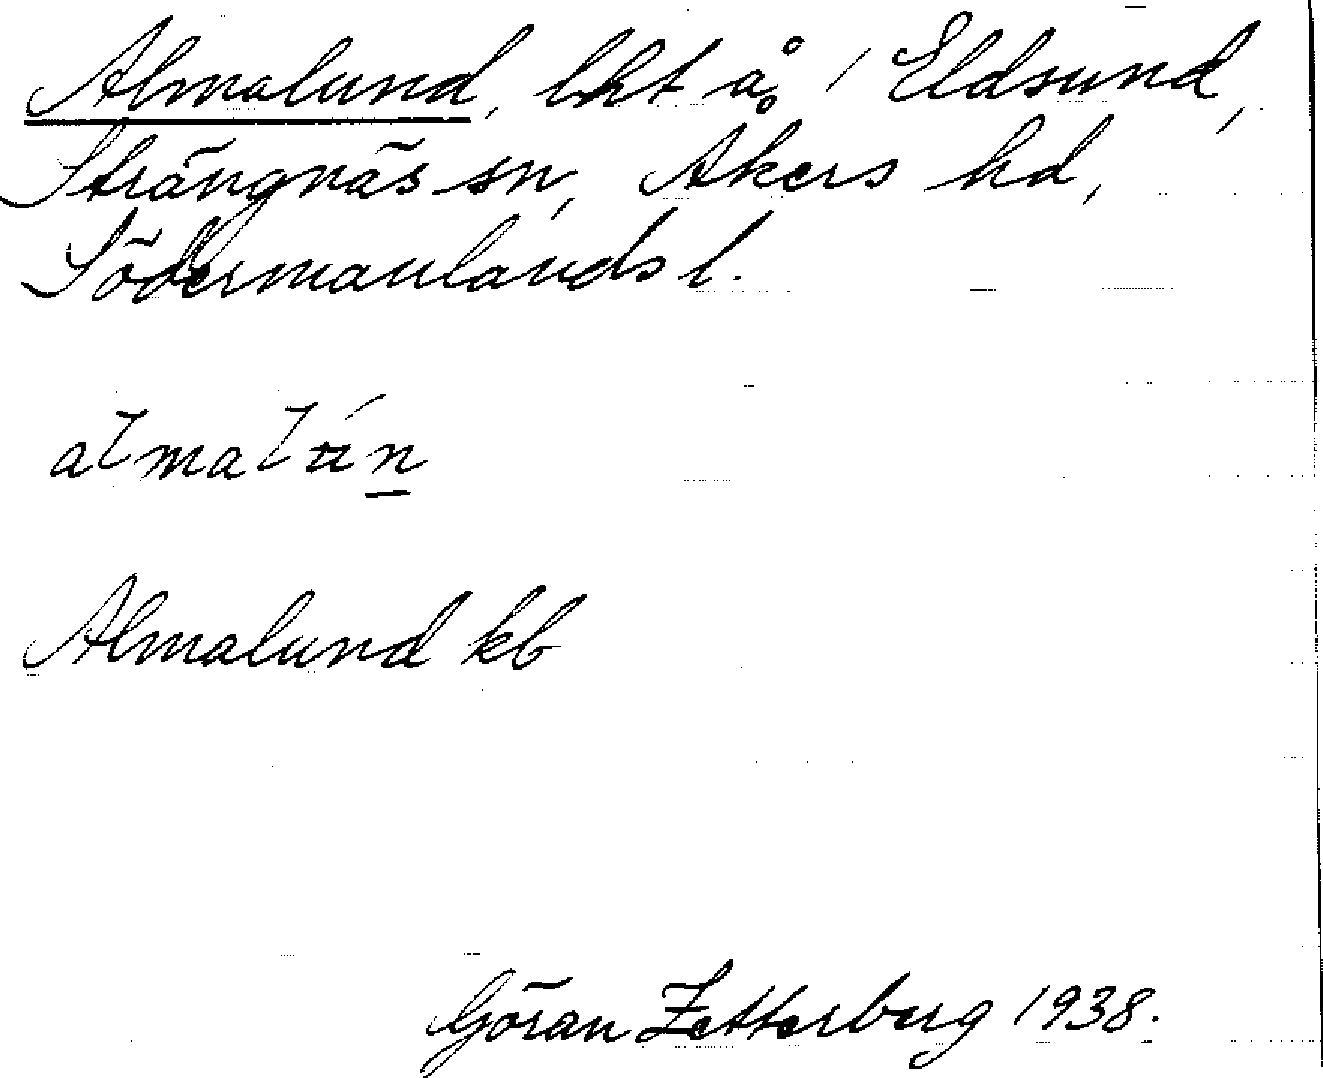 Almalund, lht å 1 Eldsund,
Strängnäs sn, Åkers hd,
Södermanlands l.
Almalund kb
Göran Zetterberg 1938.